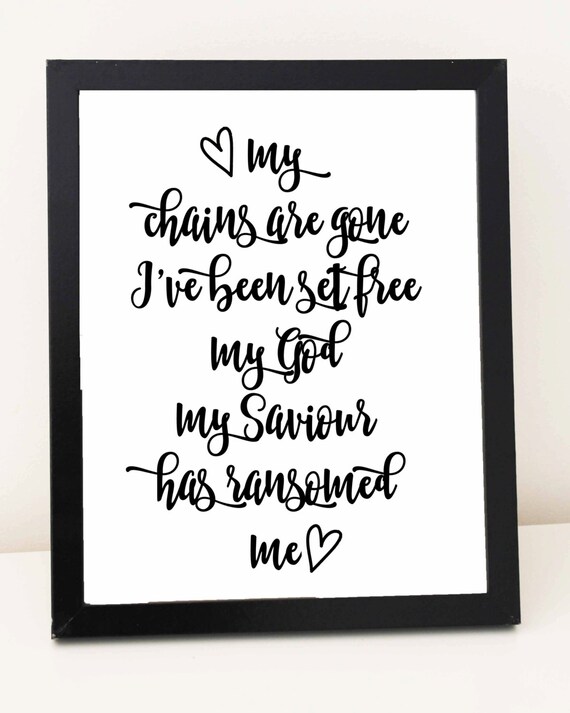 my
chains are gone
I've been set free
my God
my Saviour
has ransomed
me